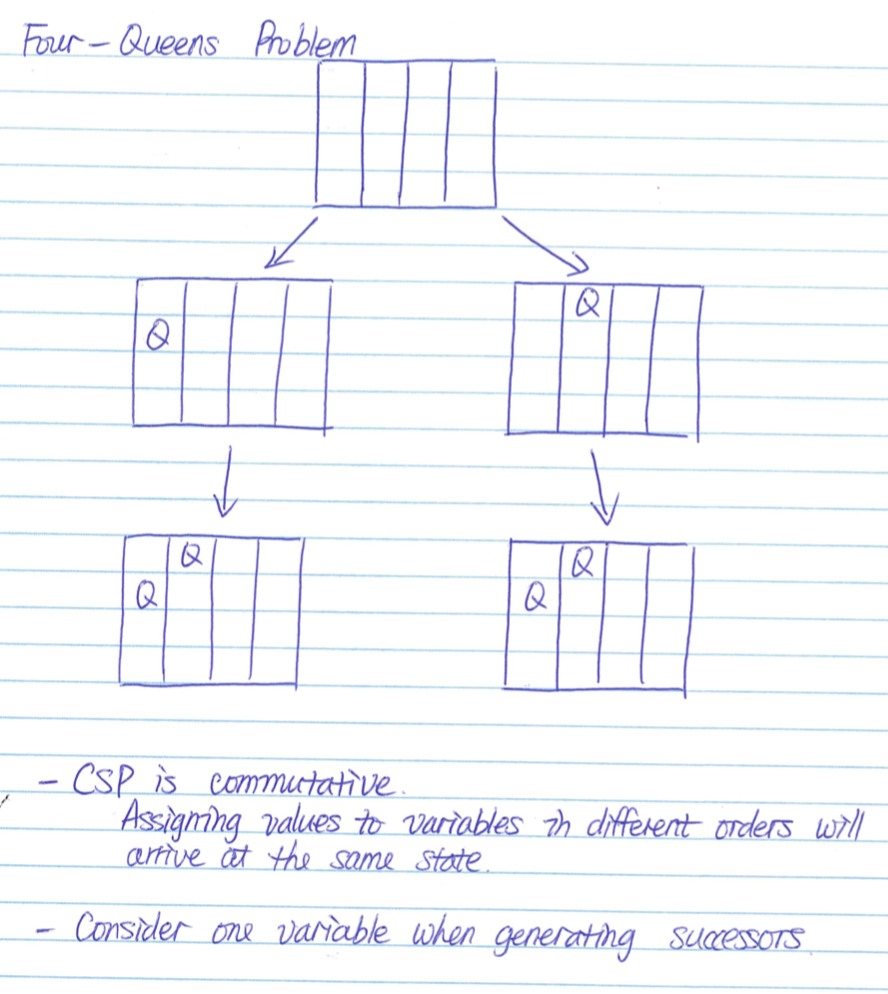 Four-Queens Problem
Q
Q
Q
Q
Q
Q
- CSP is commutative.
Assigning values to variables in different orders will
arrive at the same state.
- Consider one variable when generating successors